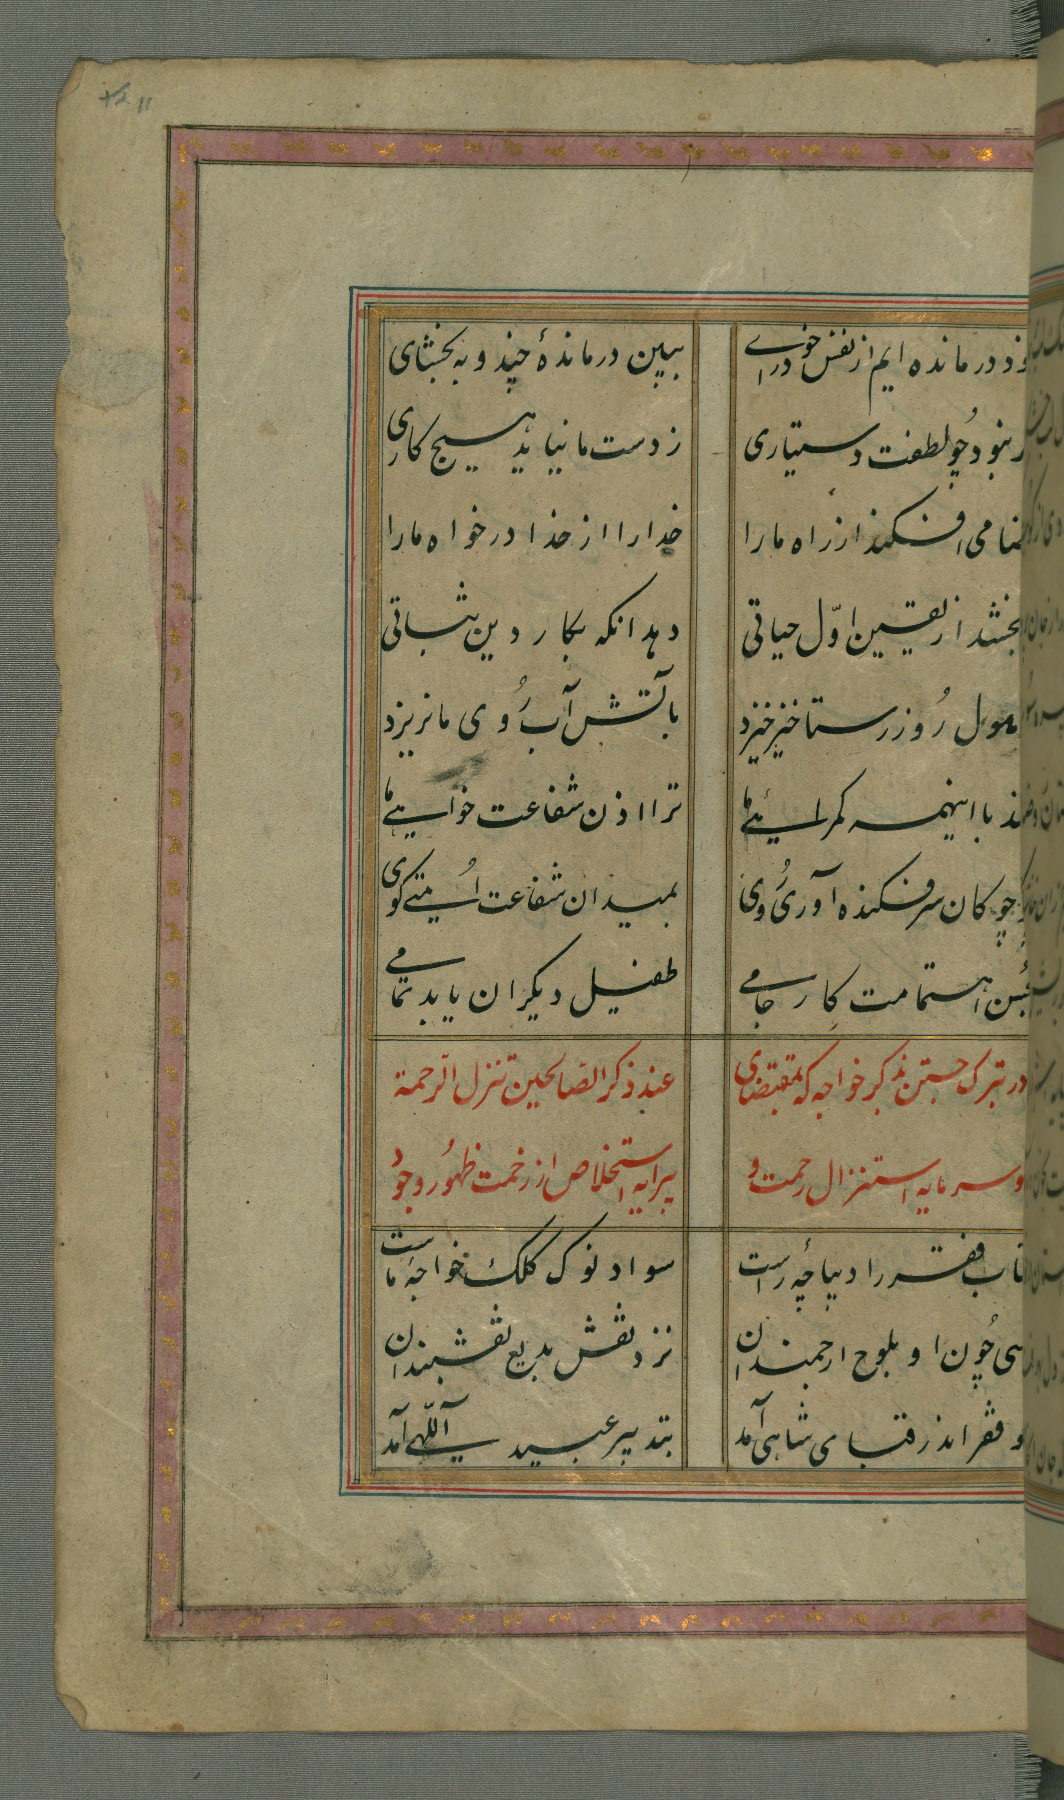 در مانده ایم از نفس خودرای ببین در ماندهٔ چند و به بخشای
نبود چو لطفت دستیاری ز دست ما نیاید هیچ کاری
می افکند از راه ما را خدا را از خدا درخواه ما را
بخشد از یقین اوّل حیاتی دهد انکه بکار دین ثباتی
هول رُوز رستاخیز خیزد بآتش آب رُوی ما نریزد
با اینهمه کمراهیٔ ما ترا اذن شفاعت خواهی ما
چو کان سر فکنده آوری رُوی بمیدان شفاعت اُمتی کوی
بحسن اهتمامت کار جامی طفیل دیکران یابد تمامی
در تبرک جستن بذکر خواجه که بمقتضای عند ذکر الصّالحین تنزل الرحمة
و سرمایه استنزال رحمت و پیرایه استخلاص از زحمت ظهُور وجود
فقر را دیباچه راست سواد نوک کلک خواجه ماست
چُون او بلوح ارجمندان نزد نقش بدیع نقشبندان
فقر اندر قبای شاهی آمد بتدبیر عبید اللّهی آمد